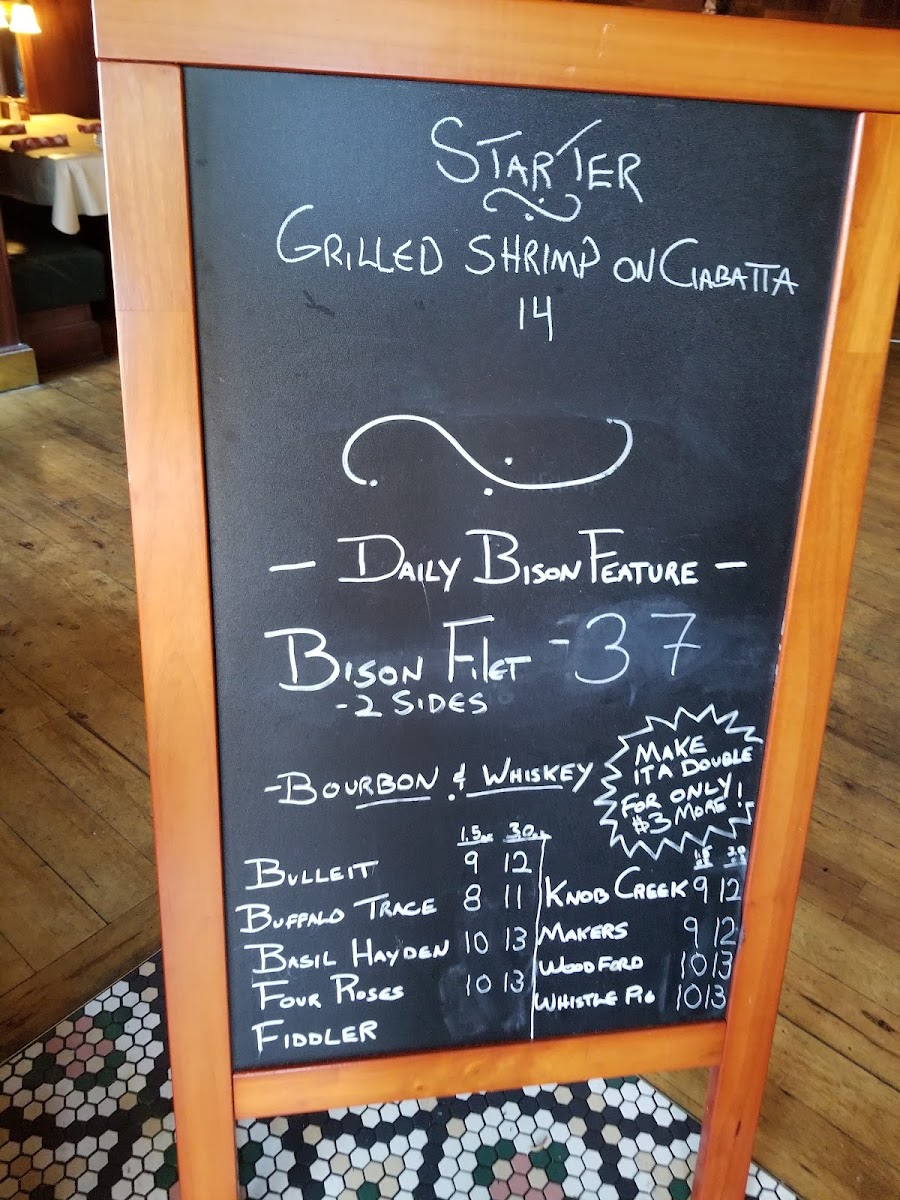 STARTER
GRILLED SHRIMP ON CIABATTA
14
- DAILY BISON FEATURE -
BISON FILET - 37
- 2 SIDES
- BOURBON & WHISKEY
MAKE
IT A DOUBLE
FOR ONLY!
$3 MORE
1.5oz 3.0oz
BULLEIT 9 12
BUFFALO TRACE 8 11
BASIL HAYDEN 10 13
FOUR ROSES 10 13
FIDDLER
1.5oz 3.0oz
KNOB CREEK 9 12
MAKERS 9 12
WOODFORD 10 13
WHISTLE PIG 10 13